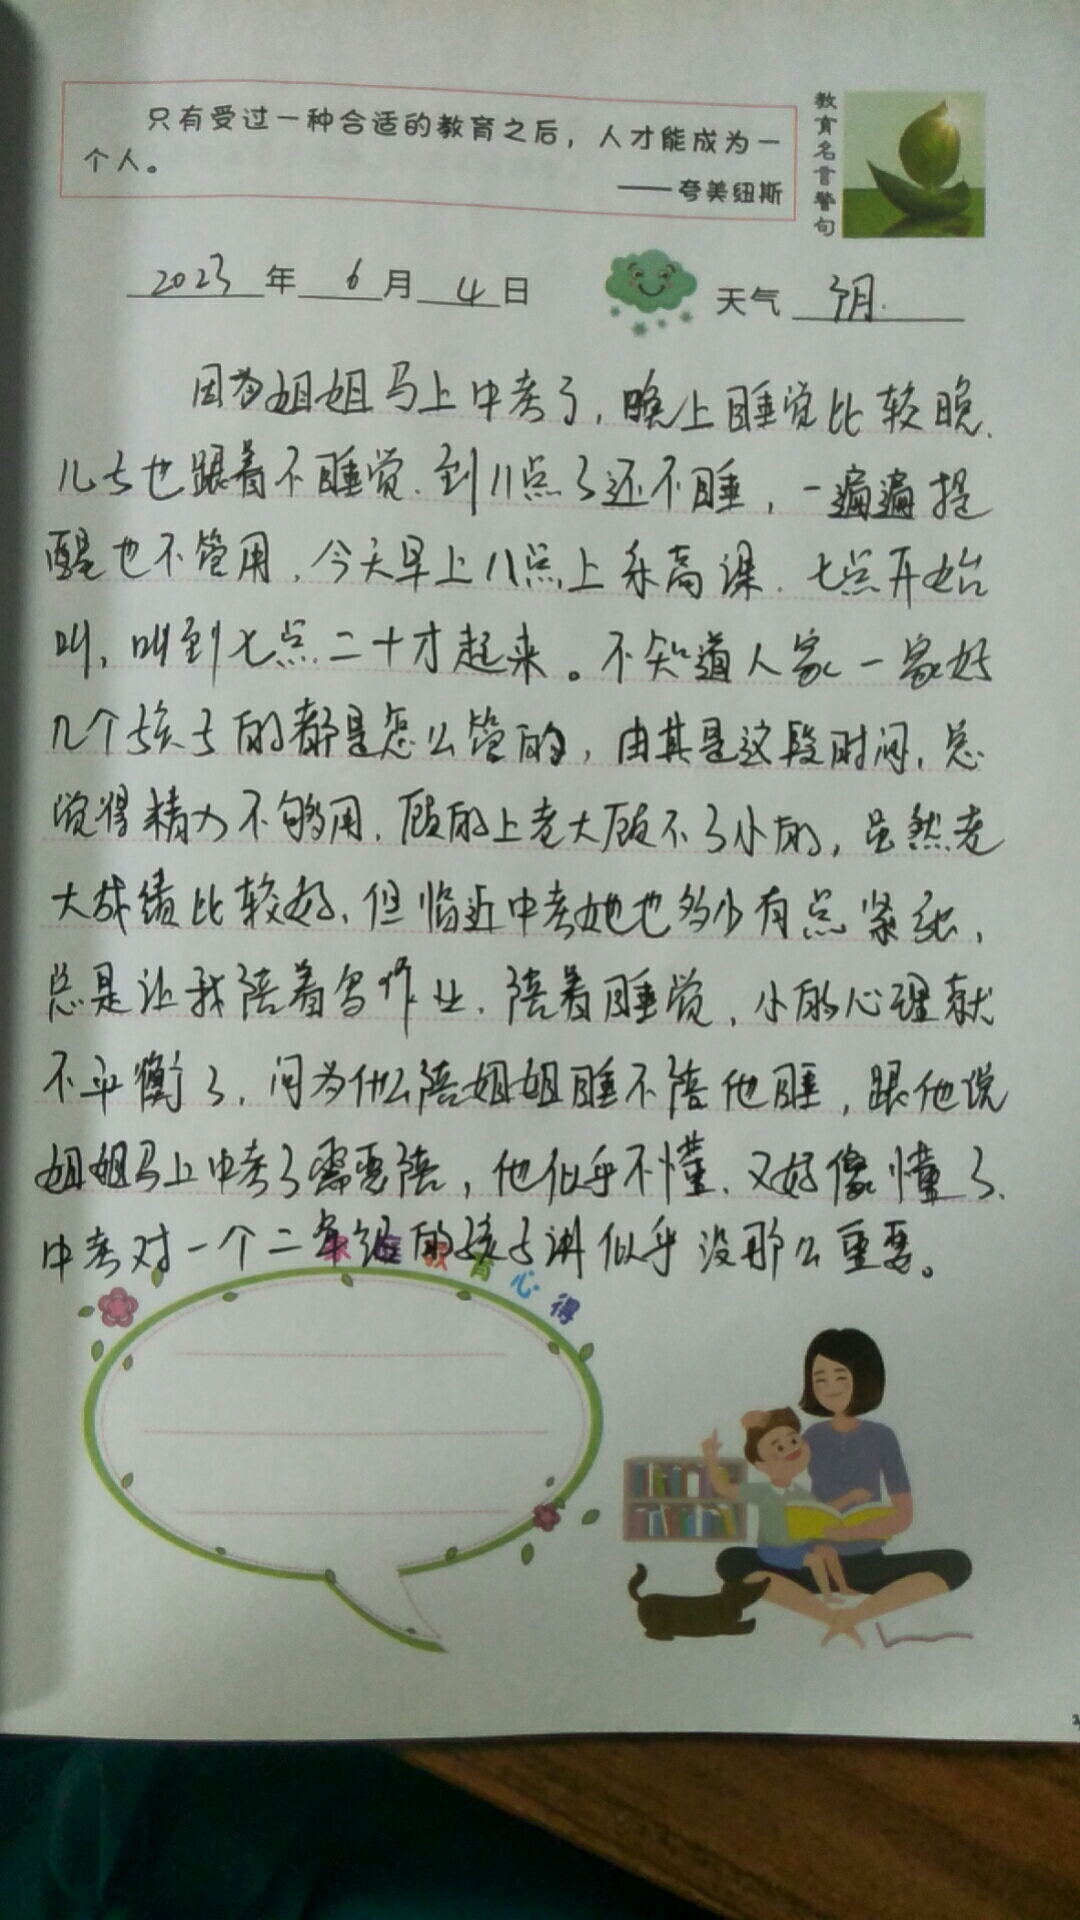 只有受过一种合适的教育之后，人才能成为一
个人。
——夸美纽斯
教育名言警句
2023年6月4日
天气 阴.
因为姐姐马上中考了，晚上睡觉比较晚.
儿子也跟着不睡觉.到11点了还不睡，一遍遍提
醒也不管用，今天早上八点上乐高课.七点开始
叫，叫到七点二十才起来。不知道人家一家好
几个孩子的都是怎么管的，由其是这段时间，总
觉得精力不够用，顾的上老大顾不了小的，虽然老
大成绩比较好，但临近中考她也多少有点紧张，
总是让我陪着写作业，陪着睡觉，小的心理就
不平衡了，问为什么陪姐姐睡不陪他睡，跟他说
姐姐马上中考了需要陪，他似乎不懂.又好像懂了.
中考对一个二年级的孩子讲似乎没那么重要。
家庭教育心得